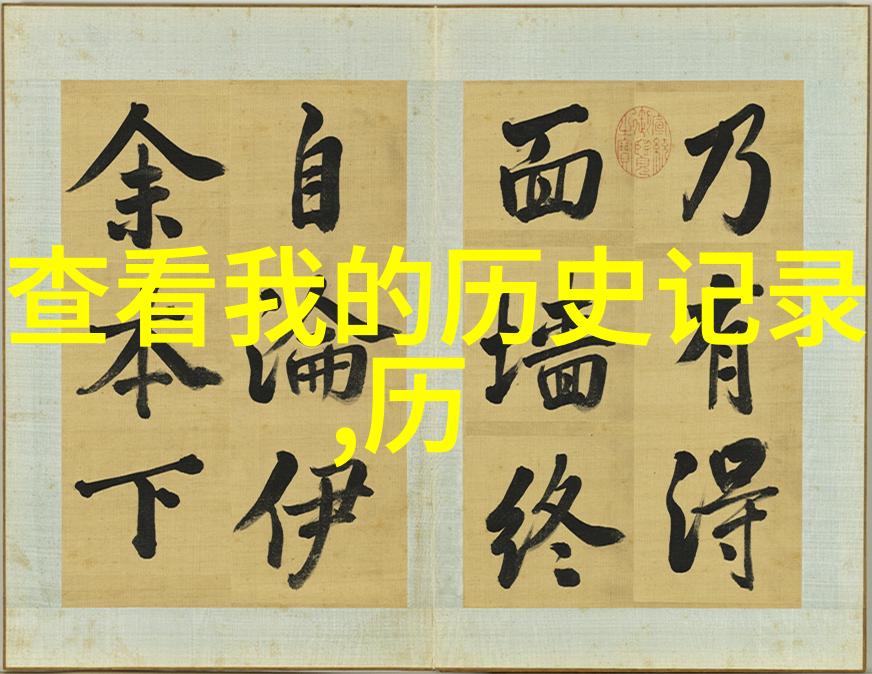 查看我的历史记录
,历
乃有得
面墙终
自淪伊
余本下